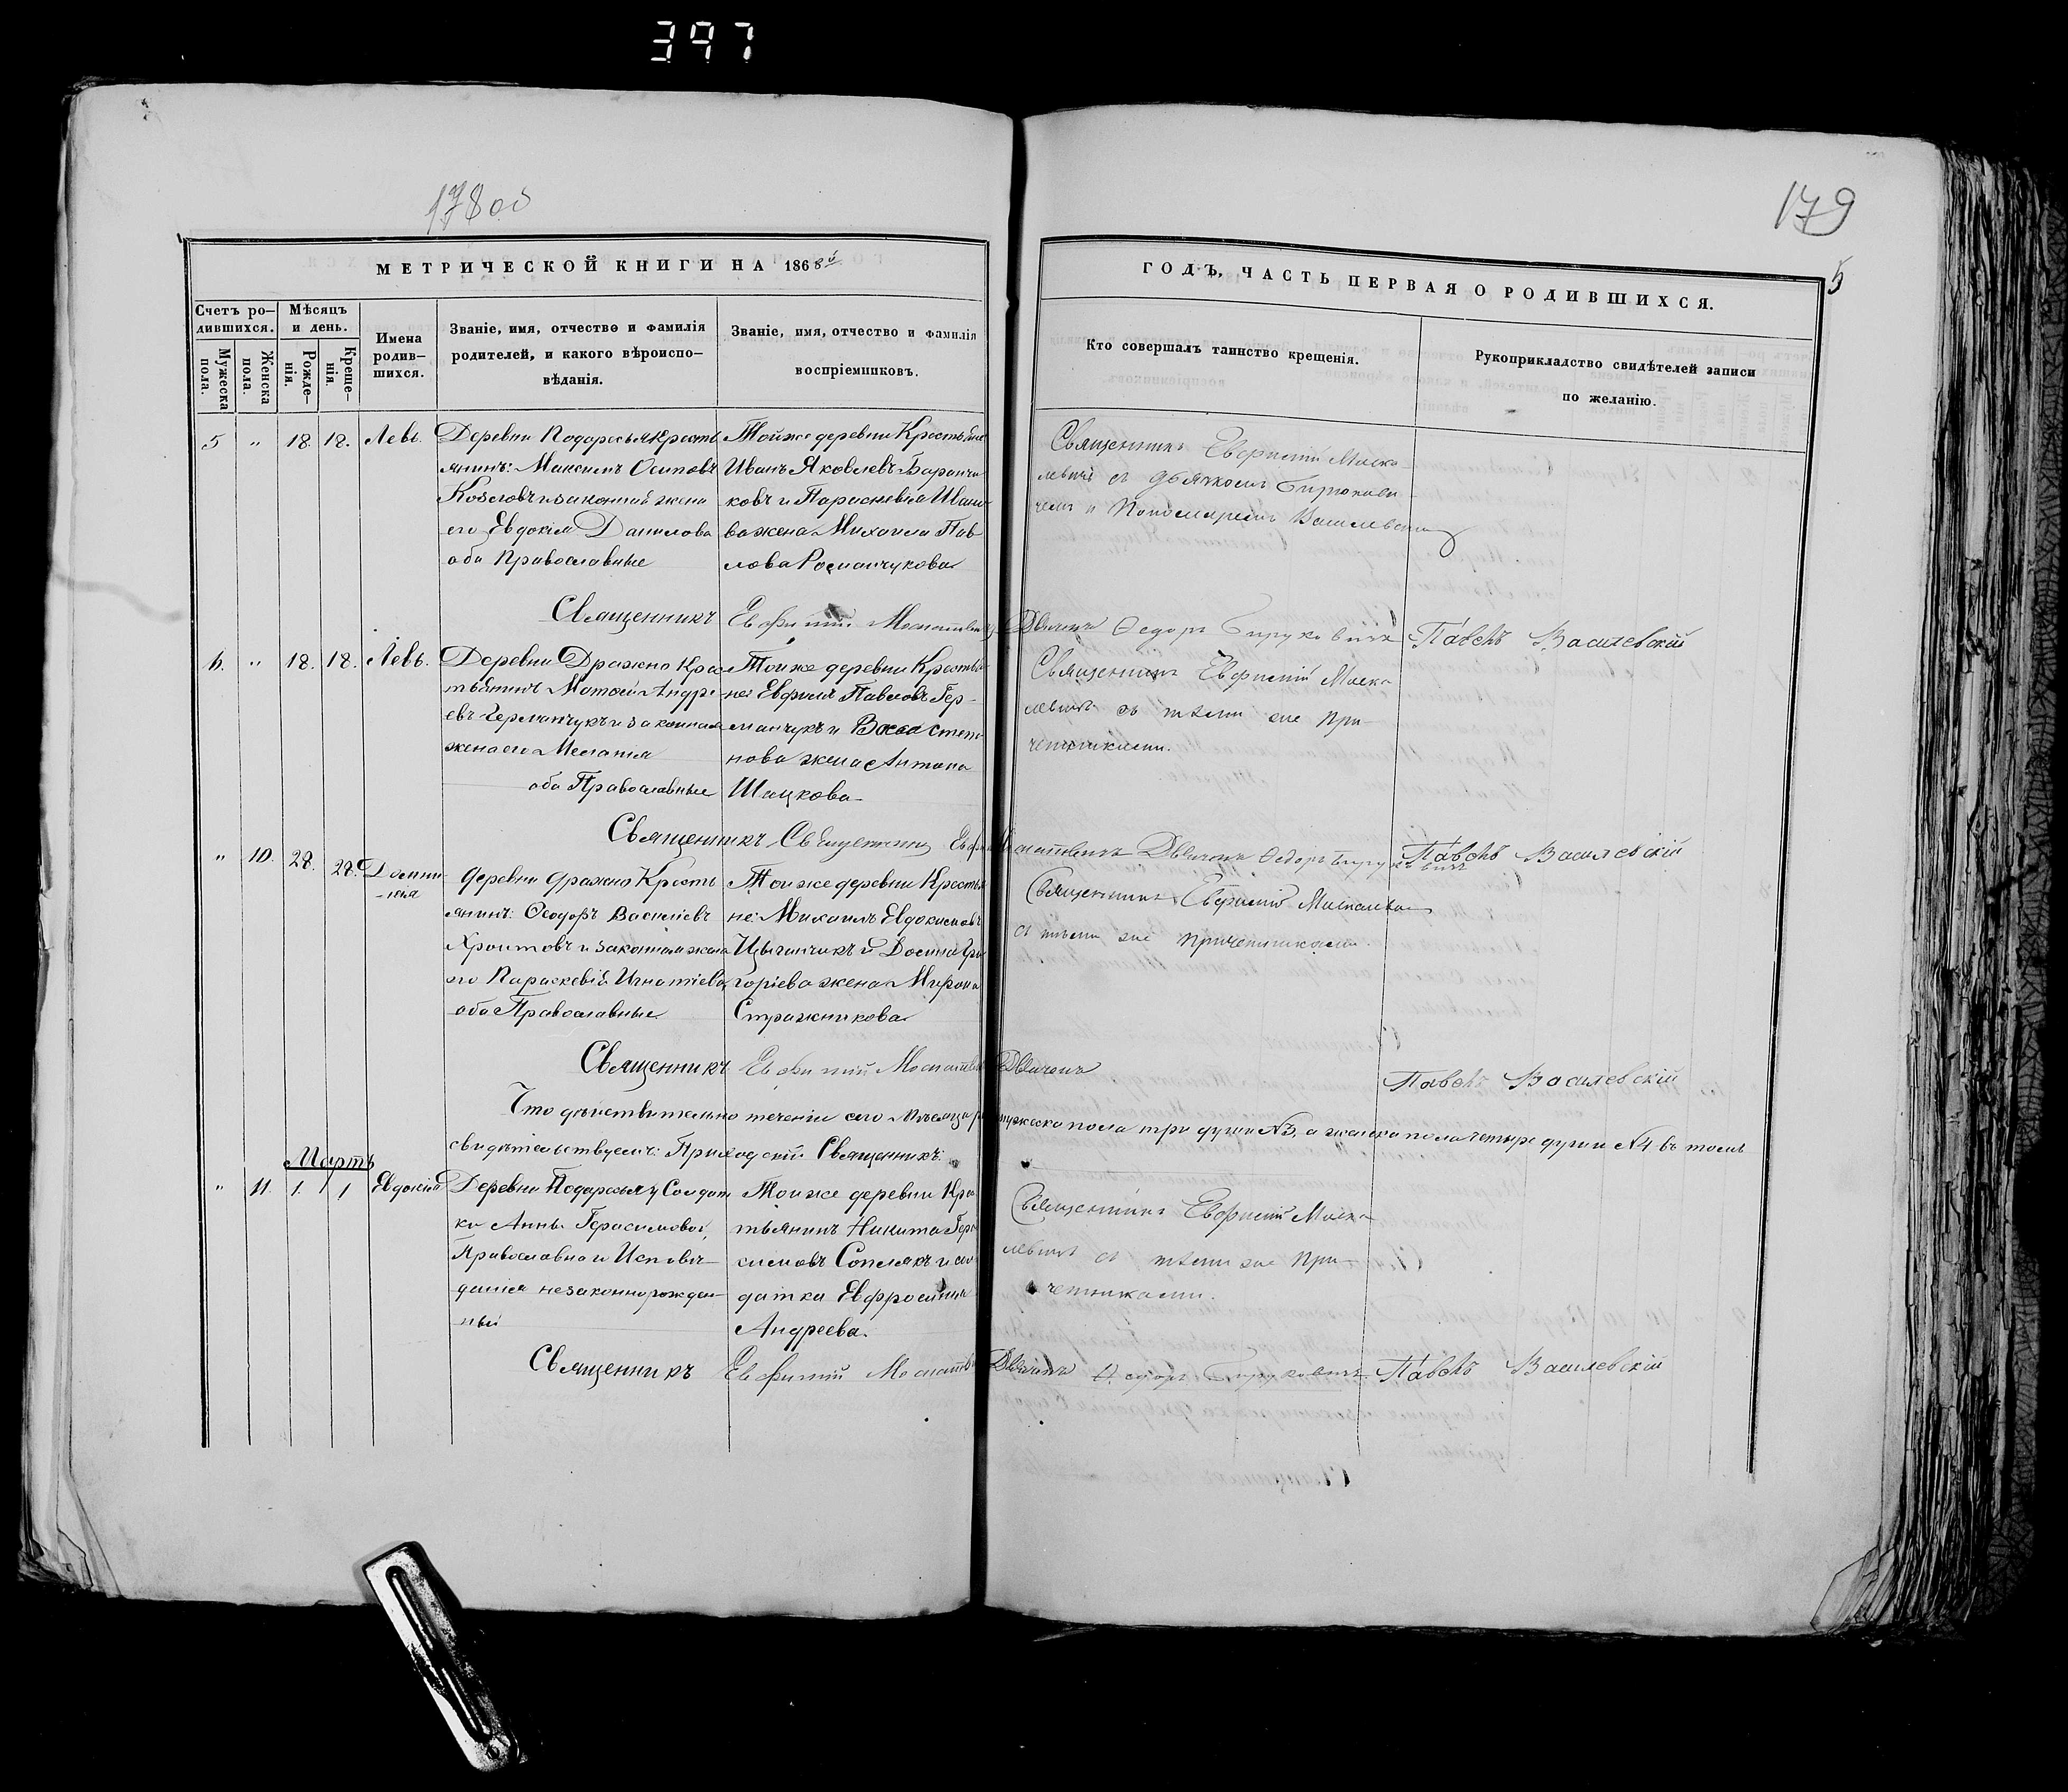 397
178 об
179
МЕТРИЧЕСКОЙ КНИГИ НА 1868й
ГОДЪ, ЧАСТЬ ПЕРВАЯ О РОДИВШИХСЯ.
5
Счетъ ро-
дившихся.
Мужеска пола.
Женска пола.
Мѣсяцъ
и день.
Рожде-
нія.
Креще-
нія.
Имена
родив-
шихся.
Званіе, имя, отчество и фамилія
родителей, и какого вѣроиспо-
вѣданія.
Званіе, имя, отчество и фамилія
воспріемниковъ.
Кто совершалъ таинство крещенія.
Рукоприкладство свидѣтелей записи
по желанію.
5 " 18. 18. Левъ.
Деревни Подоресья Кресть
янинъ: Максимъ Осиповъ
Козловъ и законная жена
его Евдокія Данилова
оба Православные
Тойже деревни
Иванъ Яковлевъ Баранчи
ковъ и Параскевія Ивано
ва жена Михаила Пав
лова Романчукова
Священникъ Евфимій
съ Дьячкомъ Бирюкови
чемъ и Пономаремъ
Священникъ Евфимій
Федоръ Бируковичъ
Павелъ Василевскій
6. " 18. 18. Левъ.
Деревни Дражно Крес
тьянинъ Матвей Андре
евъ Германчукъ и законная
жена его Меланія
оба Православные
Тойже деревни
Евфимъ Павловъ Гер-
манчукъ и Васса Степа
нова жена Антона
Шацкова
Священникъ Евфимій
съ тѣми же при
четниками.
Священникъ
Федоръ
Павелъ Василевскій
" 10. 28. 28. Домни-
-кія
Деревни Дражно Кресть
янинъ: Феодоръ Василіевъ
и законная жена
его Параскевія Игнатіева
оба Православные
Тойже деревни Крестья
не: Михаилъ Евдокимовъ
Цыганчикъ и Домна Гри
горіева жена Мирона
Стражникова
Священникъ Евфимій
съ тѣми же причетниками.
Священникъ Евфимій
Павелъ Василевскій
Что дѣйствительно теченіи сего Мѣсяца
мужеска пола три души №3, а женска пола четыре души №4 въ томъ
свидѣтельствуемъ: Приходскій Священникъ:
Мартъ
" 11. 1. 1 Евдокія
Деревни Подоресья у Солдат
ки Анны Герасимовой,
Православнаго Исповѣ-
данія незаконнорожден-
ный
Тойже деревни Крес
тьянинъ Никита Гера
симовъ Соплякъ и сол
датка Евфросинія
Андреева.
Священникъ Евфимій
съ тѣми же при-
четниками.
Священникъ Евфимій
Федоръ Бируковичъ
Павелъ Василевскій